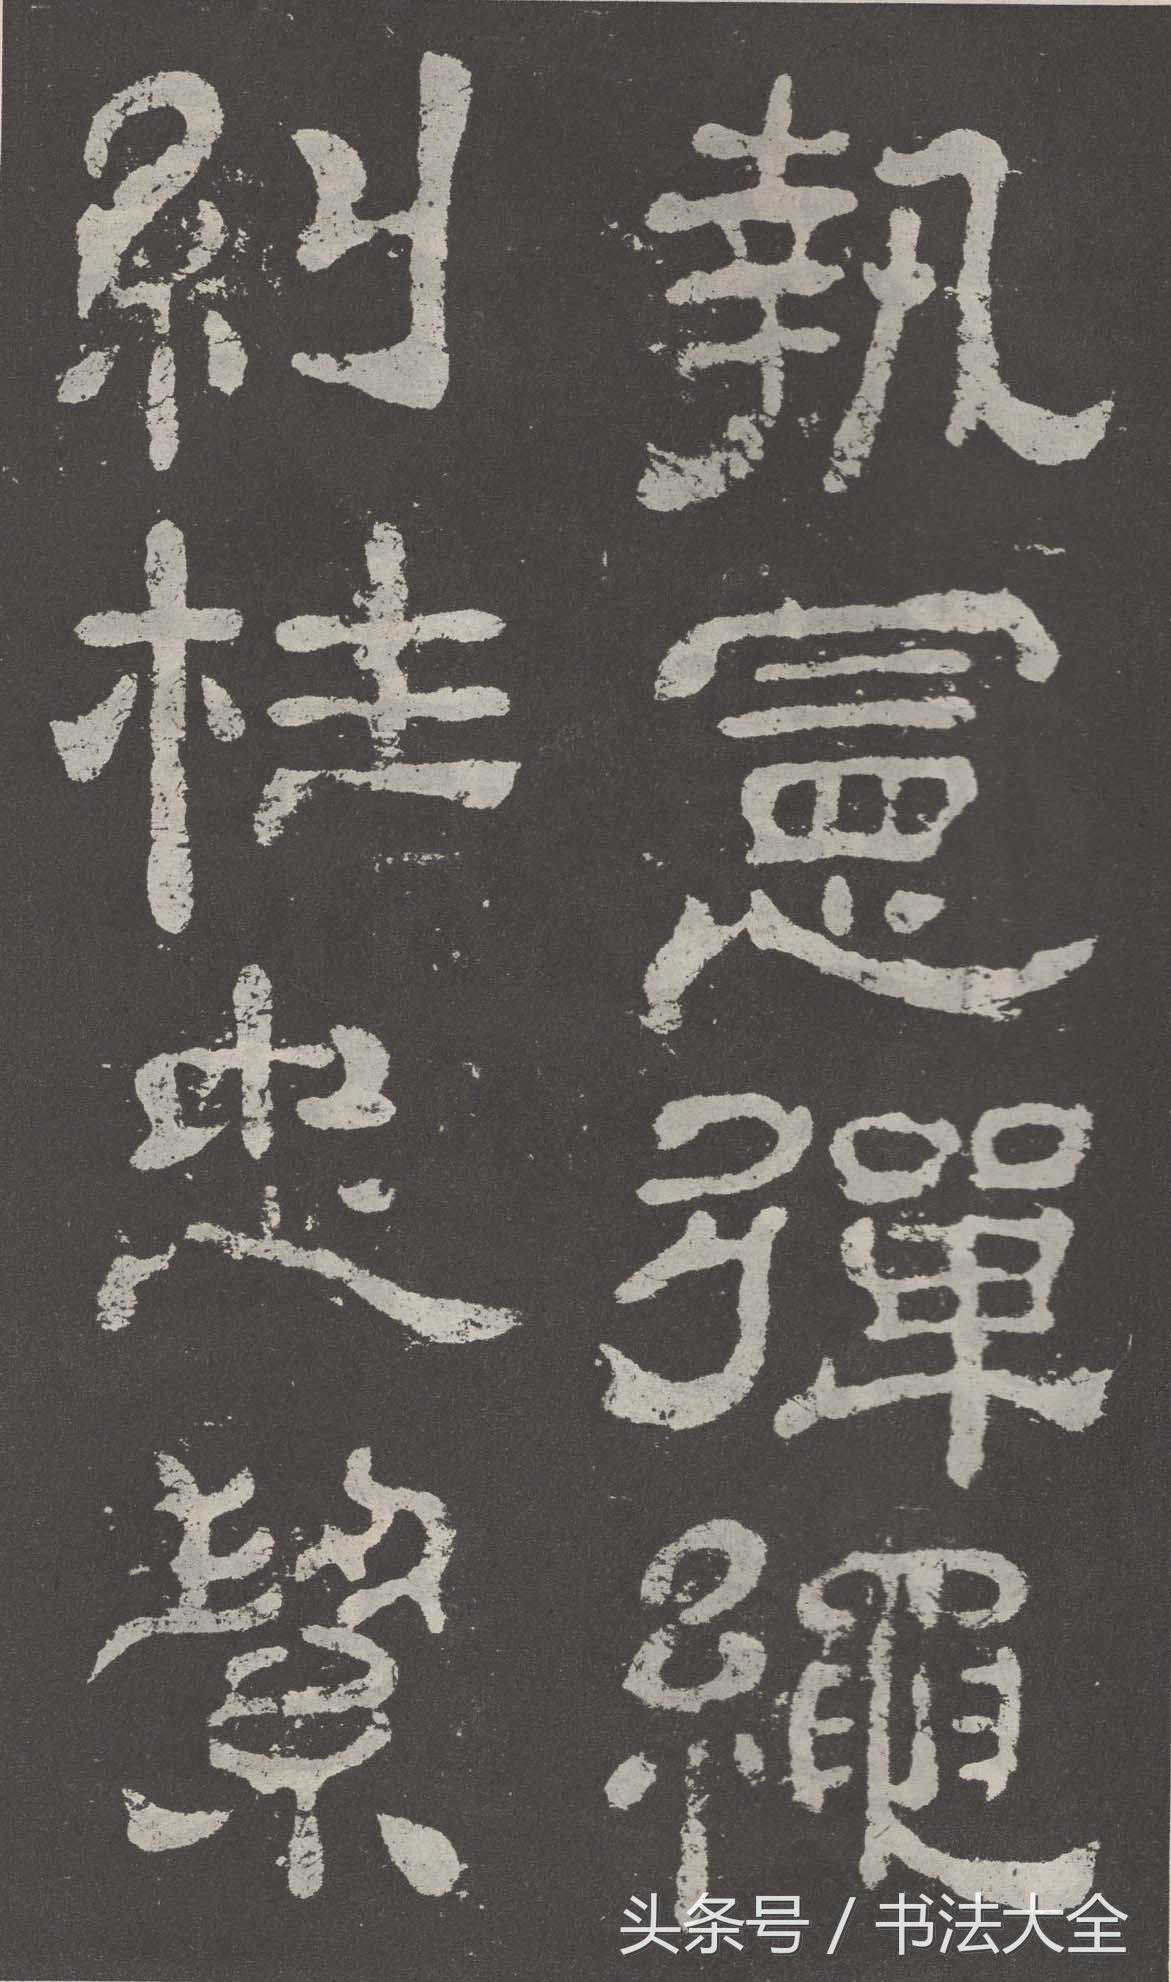 執憲彈繩
糾枉忠絜
头条号 / 书法大全